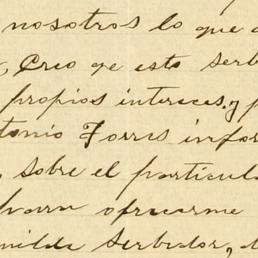 nosotros lo que
, Creo qe esto ser
propios intereces, y
tonio Torres infor
, sobre el particula
ofrecerme
milde serbidor,